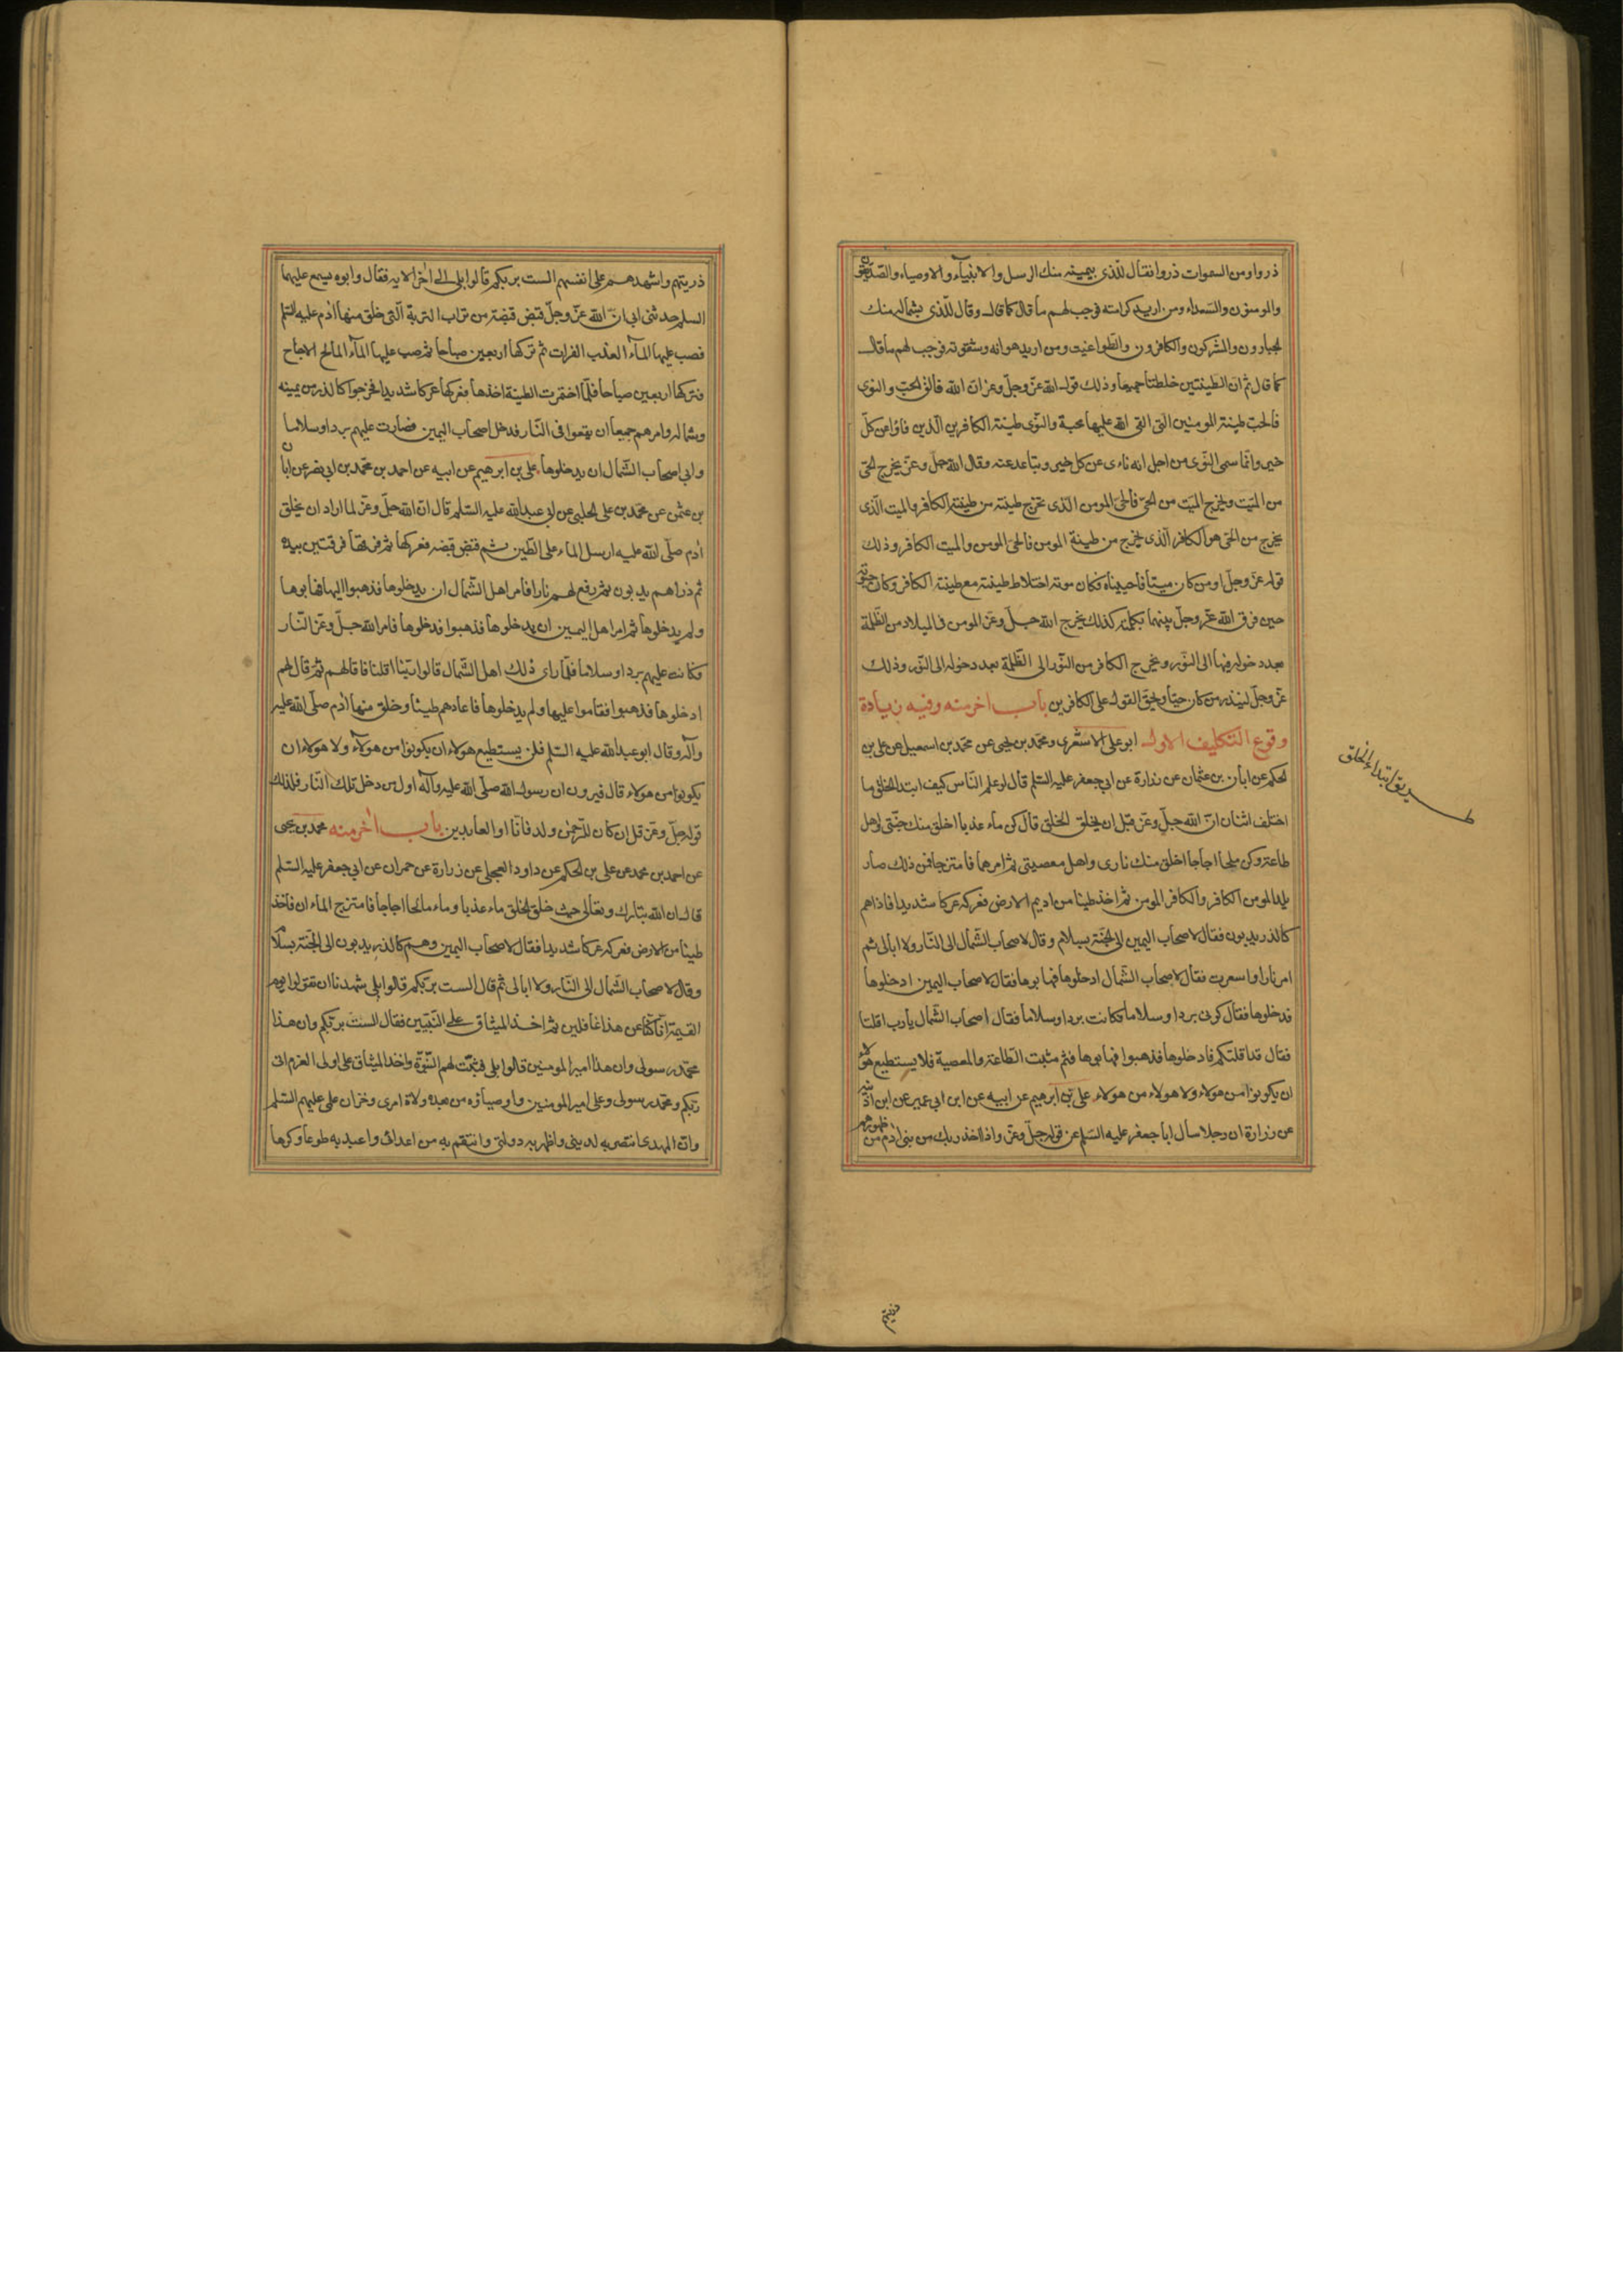 ذروا ومن السموات ذروا فقال للذى بيمينه منك الرسل والانبياء والاوصياء والصديقون
والمومنون والسعداء ومن اريد كرامته فوجب لهم ما قال كما قال وقال للذى بشماله منك
الجبارون والمشركون والكافرون والطواغيت ومن اريد هوانه وشقوته فوجب لهم ما قال
كما قال ثم ان الطينتين خلطتا جميعا وذلك قول الله عز وجل وعز ان الله فالق الحب والنوى
فالحب طينة المومنين التى القى الله عليها محبة والنوى طينة الكافرين الذين فاؤا من كل
خير وانما سمى النوى من اجل انه ناءى عن كل خير وتباعد عنه وقال الله جل وعز يخرج الحى
من الميت ويخرج الميت من الحى فالحى المومن الذى تخرج طينته من طينة الكافر والميت الذى
يخرج من الحى هو الكافر الذى يخرج من طينة المومن فالحى المومن والميت الكافر وذلك
قوله عز وجل اومن كان ميتا فاحييناه فكان موته اختلاط طينته مع طينة الكافر وكان حيوته
حين فرق الله عز وجل بينهما بكلمته كذلك يخرج الله جل وعز المومن فى الميلاد من الظلمة
بعد دخوله فيها الى النور ويخرج الكافر من النور الى الظلمة بعد دخوله الى النور وذلك
عز وجل لينذر من كان حيا ويحق القول على الكافرين باب اخر منه وفيه زيادة
وقوع التكليف الاول ابو على الاشعرى ومحمد بن يحيى عن محمد بن اسمعيل عن على بن
طريق ابتداء الخلق
الحكم عن ابان بن عثمان عن زرارة عن ابى جعفر عليه السلم قال لو علم الناس كيف ابتدا الخلق ما
اختلف اثنان ان الله جل وعز قبل ان يخلق الخلق قال كن ماء عذبا اخلق منك جنتى واهل
طاعتى وكن ملحا اجاجا اخلق منك نارى واهل معصيتى ثم امرهما فامتزجا فمن ذلك صار
يلد المومن الكافر والكافر المومن ثم اخذ طينا من اديم الارض فعركه عركا شديدا فاذا هم
كالذر يدبون فقال لاصحاب اليمين الى الجنة بسلام وقال لاصحاب الشمال الى النار ولا ابالى ثم
امر نارا واسعرت فقال لاصحاب الشمال ادخلوها فهابوها فقال لاصحاب اليمين ادخلوها
فدخلوها فقال كونى بردا وسلاما فكانت بردا وسلاما فقال اصحاب الشمال يا رب اقلنا
فقال قد اقلتكم فادخلوها فذهبوا فهابوها فثم مثبت الطاعة والمعصية فلا يستطيع هولاء
ان يكونوا من هولاء ولا هولاء من هولاء على بن ابرهيم عن ابيه عن ابن ابى عمير عن ابن اذينه
عن زرارة ان رجلا سال ابا جعفر عليه السلم عن قوله جل وعز واذ اخذ ربك من بنى ادم من ظهورهم
ذريتهم
ذريتهم واشهدهم على انفسهم الست بربكم قالوا بلى الى اخر الاية فقال وابوه يسمع عليهما
السلم حدثنى ابى ان الله عز وجل قبض قبضة من تراب التربة التى خلق منها ادم عليه السلم
فصب عليها الماء العذب الفرات ثم تركها اربعين صباحا ثم صب عليها الماء المالح الاجاج
فتركها اربعين صباحا فلما اختمرت الطينة اخذها فعركها عركا شديدا فخرجوا كالذر من يمينه
وشماله وامرهم جميعا ان يقعوا فى النار فدخل اصحاب اليمين فصارت عليهم بردا وسلاما
وابى اصحاب الشمال ان يدخلوها على بن ابرهيم عن ابيه عن احمد بن محمد بن ابى نصر عن ابان
بن عثمن عن محمد بن على الحلبى عن ابى عبد الله عليه السلم قال ان الله جل وعز لما اراد ان يخلق
ادم صلى الله عليه ارسل الماء على الطين ثم قبض قبضة فعركها ثم فرقها فرقتين بيده
ثم ذراهم يدبون ثم رفع لهم نارا فامر اهل الشمال ان يدخلوها فذهبوا اليها فهابوها
ولم يدخلوها ثم امر اهل اليمين ان يدخلوها فذهبوا فدخلوها فامر الله جل وعز النار
فكانت عليهم بردا وسلاما فلما راى ذلك اهل الشمال قالوا ربنا اقلنا فاقالهم ثم قال لهم
ادخلوها فذهبوا فقاموا عليها ولم يدخلوها فاعادهم طينا وخلق منها ادم صلى الله عليه
وآله وقال ابو عبد الله عليه السلم فلن يستطيع هولاء ان يكونوا من هولاء ولا هولاء ان
يكونوا من هولاء قال فيرون ان رسول الله صلى الله عليه وآله اول من دخل تلك النار فلذلك
قوله جل وعز قل ان كان للرحمن ولد فانا اول العابدين باب اخر منه محمد بن يحيى
عن احمد بن محمد عن على بن الحكم عن داود العجلى عن زرارة عن حمران عن ابى جعفر عليه السلم
قال ان الله تبارك وتعالى حيث خلق الخلق ماء عذبا وماء مالحا اجاجا فامتزج الماءان فاخذ
طينا من الارض فعركه عركا شديدا فقال لاصحاب اليمين وهم كالذر يدبون الى الجنة بسلام
وقال لاصحاب الشمال الى النار ولا ابالى ثم قال الست بربكم قالوا بلى شهدنا ان تقولوا يوم
القيمة انا كنا عن هذا غافلين ثم اخذ الميثاق على النبيين فقال الست بربكم وان هذا
محمد رسولى وان هذا امير المومنين قالوا بلى فثبتت لهم النبوة واخذ الميثاق على اولى العزم انى
ربكم ومحمد رسولى وعلى امير المومنين واوصياؤه من بعده ولاة امرى وخزان علمى عليهم السلم
وان المهدى انتصر به لدينى واظهر به دولتى وانتقم به من اعدائى واعبد به طوعا وكرها